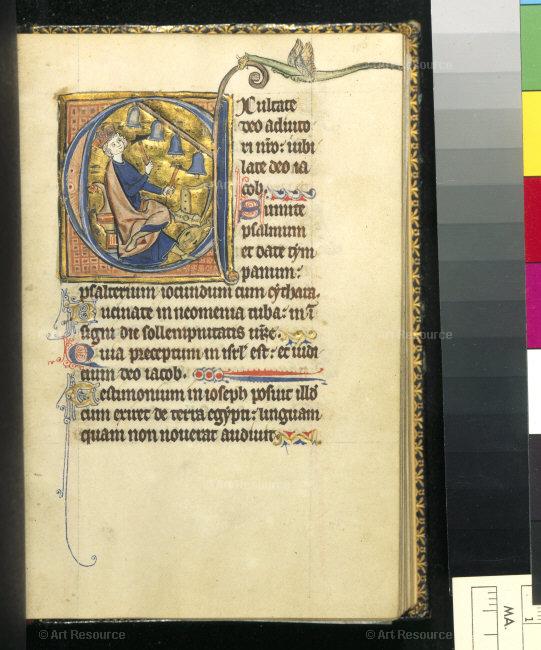 Exultate
deo adiuto
ri nr̄o: iubi
late deo ia
cob.
Sumite
psalmum
et date tym
panum:
psalterium iocundum cum cythara.
Bucinate in neomenia tuba: in ī
signi die sollempnitatis ur̄e.
Quia preceptum in isrl̄ est: et iudi
cium deo iacob.
Testimonium in ioseph posuit illd̄
cum exiret de terra egypti: linguam
quam non nouerat audiuit.
© Art Resource
© Art Resource
© Art Resource
© Art Resource
© Art Resource
© Art Resource
© Art Resource
MA.
1